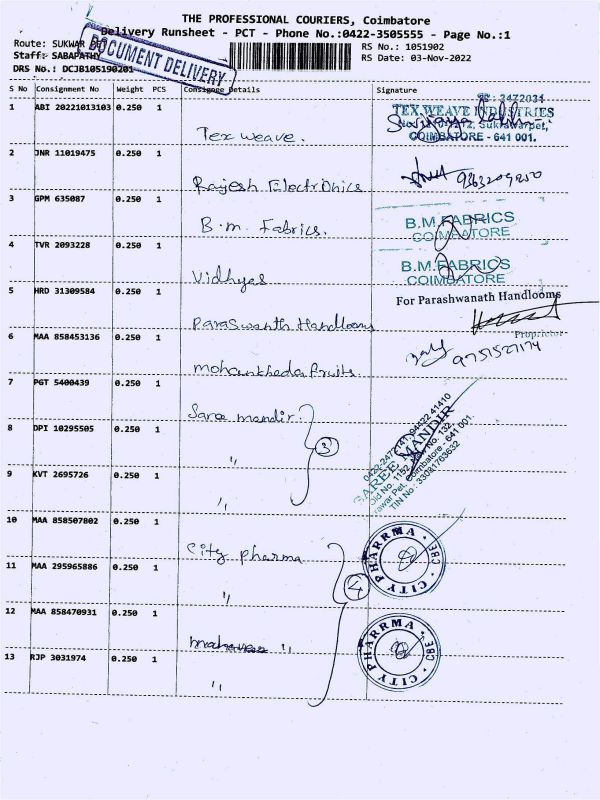 THE PROFESSIONAL COURIERS, Coimbatore
Delivery Runsheet - PCT - Phone No.:0422-3505555 - Page No.:1
Route: SUKWAR
RS No.: 1051902
Staff: SABAPATHY
RS Date: 03-Nov-2022
DRS No.: DCJB105190201
DOCUMENT DELIVERY
S No Consignment No Weight PCS Consignee Details Signature
1 ABI 20221013103 0.250 1 Tex weave.
2472031
TEX WEAVE INDUSTRIES
COIMBATORE - 641 001.
2 JNR 11019475 0.250 1 Rajesh Electronics
3 GPM 635087 0.250 1 B.m. Fabrics.
B.M.FABRICS
COIMBATORE
4 TVR 2093228 0.250 1 Vidhyas
B.M.FABRICS
COIMBATORE
5 HRD 31309584 0.250 1 Paraswanth Handlooms
For Parashwanath Handlooms
Proprietor
6 MAA 858453136 0.250 1 mohankheda fruits.
9751527174
7 PGT 5400439 0.250 1 Saree mandir.
8 DPI 10295505 0.250 1 "
3
9 KVT 2695726 0.250 1 "
SAREE MANDIR
Old No. 1152, New No. 132,
Coimbatore - 641 001.
TIN No : 33081763632
10 MAA 858507802 0.250 1 City pharma
CITY PHARRMA CBE
11 MAA 295965886 0.250 1 "
4
12 MAA 858470931 0.250 1 "
CITY PHARRMA CBE
13 RJP 3031974 0.250 1 "